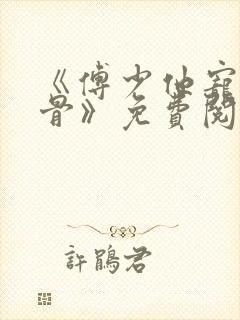 《傅少他寵
骨》免費閱
許鵑君